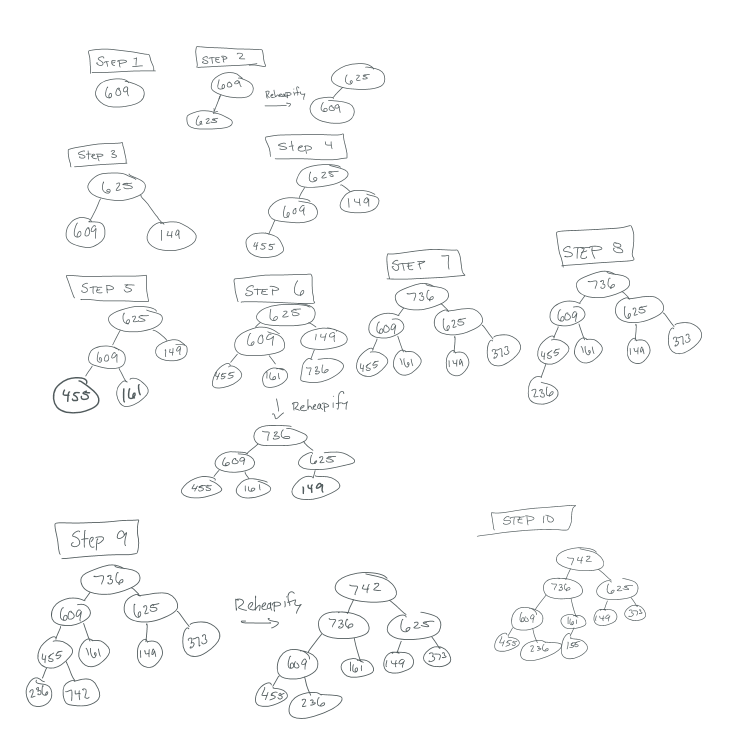 STEP 1
609
STEP 2
609
625
Reheapify
625
609
Step 3
625
609 149
Step 4
625
609 149
455
STEP 5
625
609 149
455 161
STEP 6
625
609 149
455 161 736
Reheapify
736
609 625
455 161 149
STEP 7
736
609 625
455 161 149 373
STEP 8
736
609 625
455 161 149 373
236
Step 9
736
609 625
455 161 149 373
236 742
Reheapify
742
736 625
609 161 149 373
455 236
STEP 10
742
736 625
609 161 149 373
455 236 155